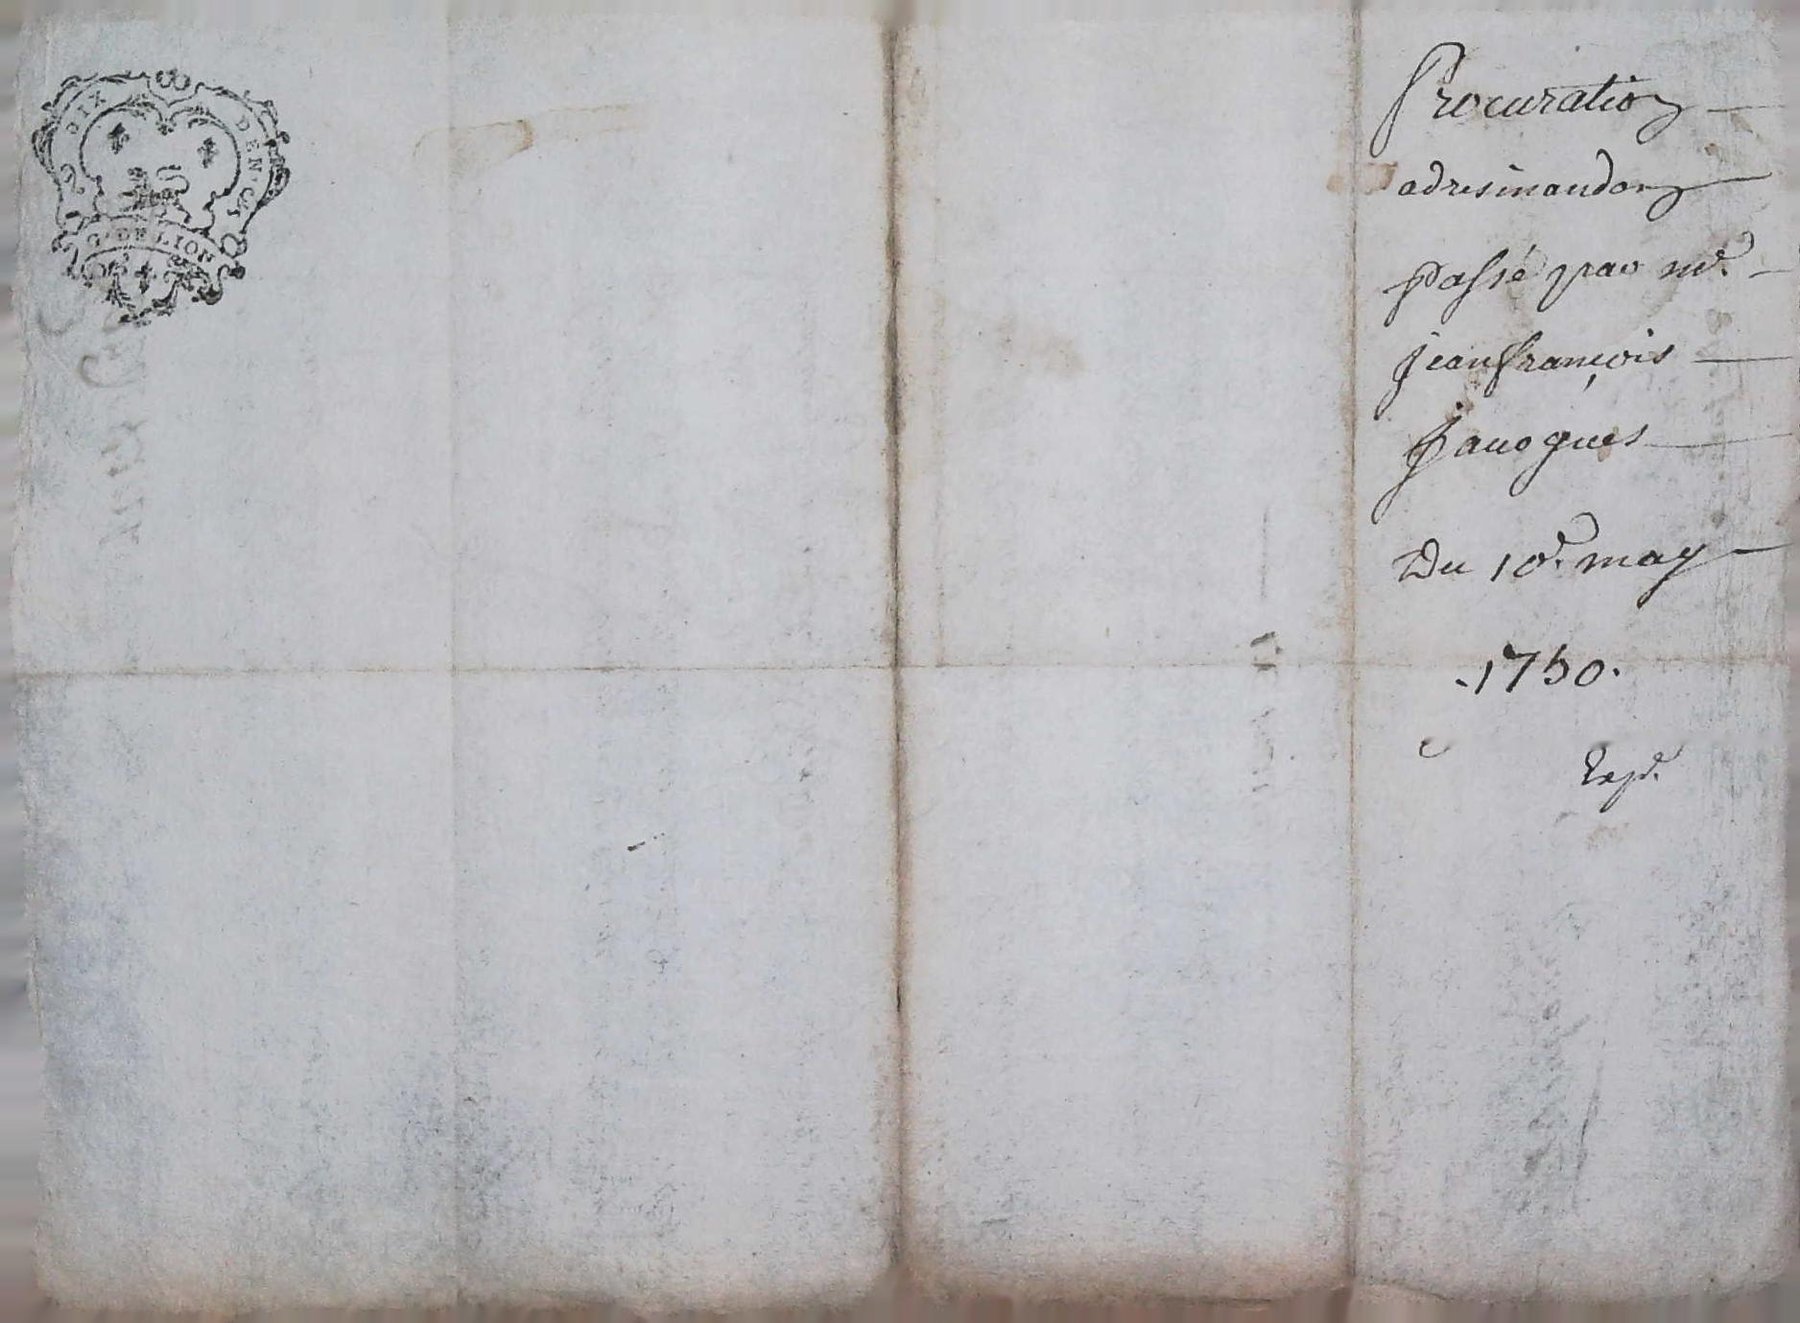 SIX DEN.
G. DE LION
Procuration
ad resinandon
passé par mr.
jean françois
Janogues
Du 10e. may
.1750.
Expé.